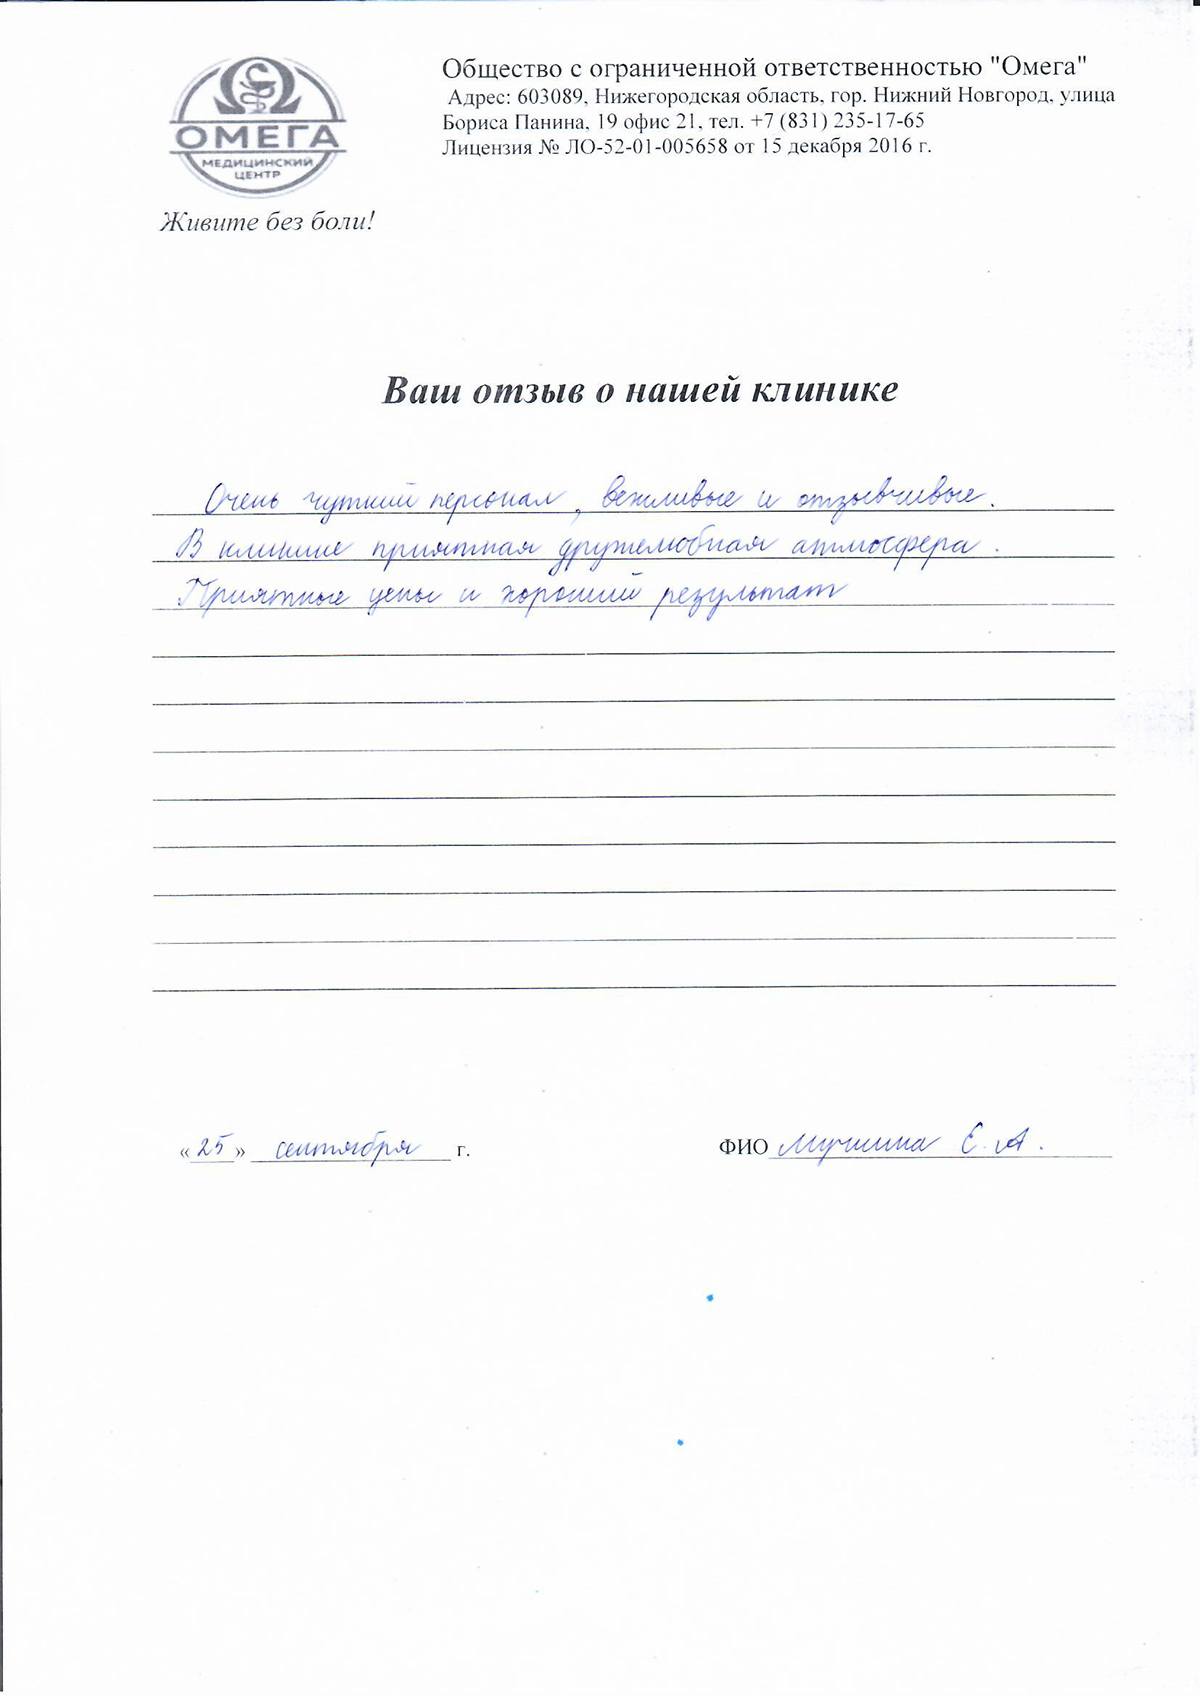 ОМЕГА
МЕДИЦИНСКИЙ
ЦЕНТР
Живите без боли!
Общество с ограниченной ответственностью "Омега"
Адрес: 603089, Нижегородская область, гор. Нижний Новгород, улица
Бориса Панина, 19 офис 21, тел. +7 (831) 235-17-65
Лицензия № ЛО-52-01-005658 от 15 декабря 2016 г.
Ваш отзыв о нашей клинике
Очень чуткий персонал, вежливые и отзывчивые.
В клинике приятная дружелюбная атмосфера.
Приятные цены и хороший результат
«25» сентября г.
ФИО Мучкина Е.А.